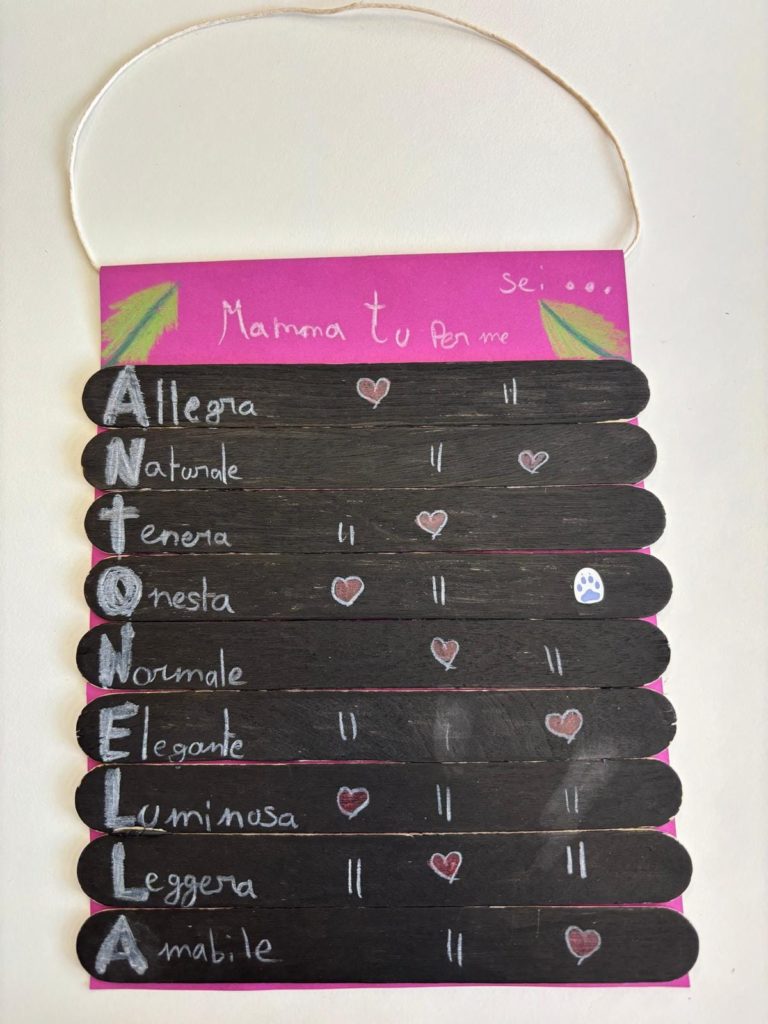 Mamma tu per me
sei ...
Allegra
Naturale
Tenera
Onesta
Normale
Elegante
Luminosa
Leggera
Amabile